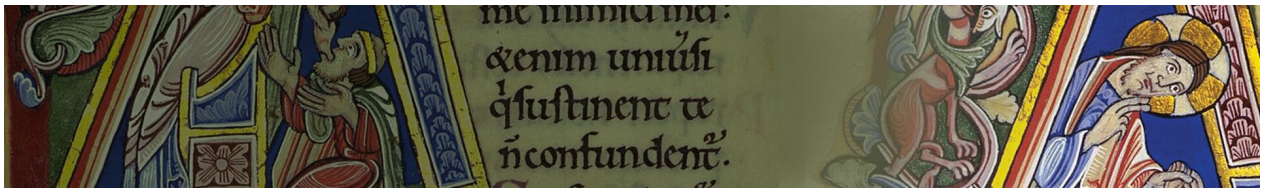 me inimici mei:
&enim uniũsi
qͥ sustinent te
ñ confundent᷑.